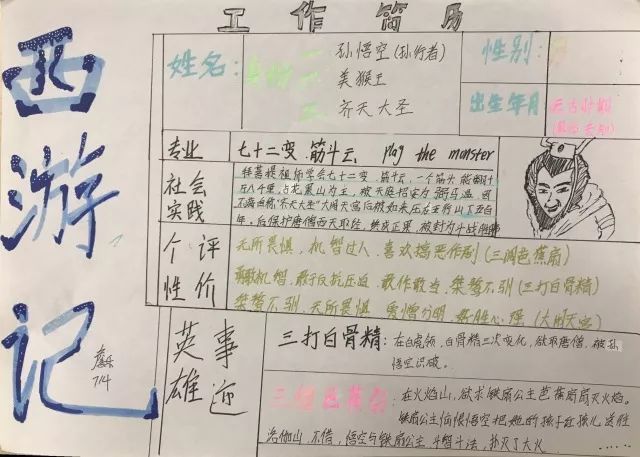 西游记
詹乐
714
工作简历
姓名：
一、孙悟空（孙行者）
二、美猴王
三、齐天大圣
性别：
出生年月
专业
七十二变 筋斗云 play the monster
社会实践
拜菩提祖师学会七十二变，筋斗云，一个筋头能翻十
万八千里，占花果山为王，被天庭招安为弼马温，因
不满自称“齐天大圣”大闹天宫后被如来压在五行山下五百
年，后保护唐僧西天取经，终成正果，被封为斗战胜佛
个性评价
无所畏惧，机智过人，喜欢搞恶作剧（三调芭蕉扇）
机智，敢于反抗压迫，敢作敢当，桀骜不驯（三打白骨精）
桀骜不驯，无所畏惧 爱憎分明 好胜心强（大闹天宫）
英雄事迹
三打白骨精：在白虎岭，白骨精三次变化，欲取唐僧，被孙
悟空识破。
三调芭蕉扇：在火焰山，欲求铁扇公主芭蕉扇扇灭火焰。
铁扇公主恼恨悟空把她的孩子红孩儿送往
洛伽山，不借，悟空与铁扇公主斗智斗法，扑灭了大火 ……